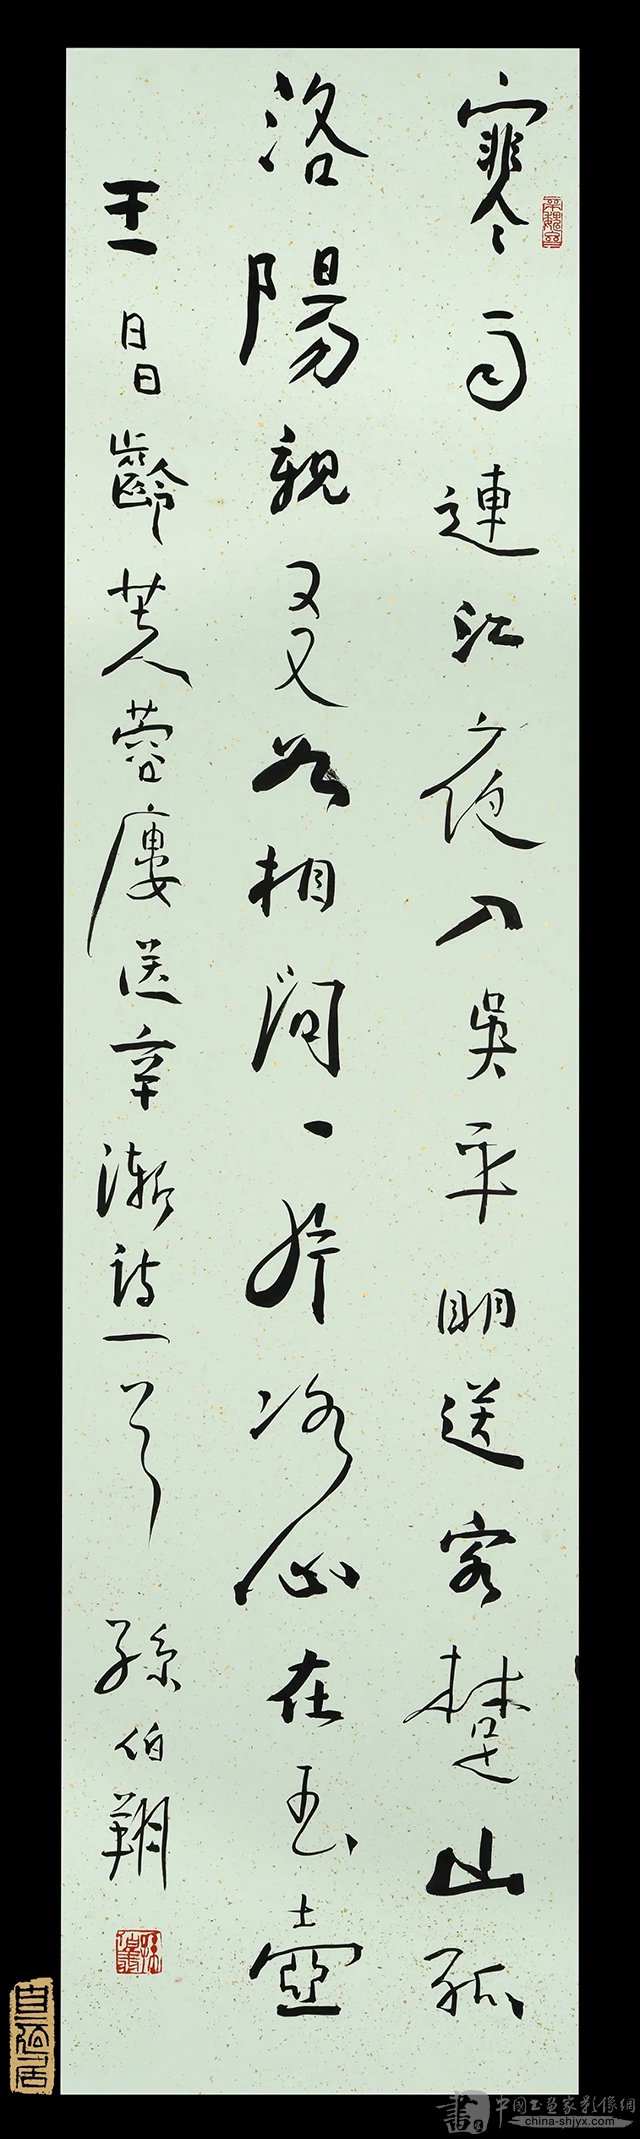 寒雨連江夜入吳平明送客楚山孤
洛陽親友如相問一片冰心在玉壺
王昌齡芙蓉廔送辛漸詩一首 孫伯翔
中國书画家影像網
china-shjyx.com